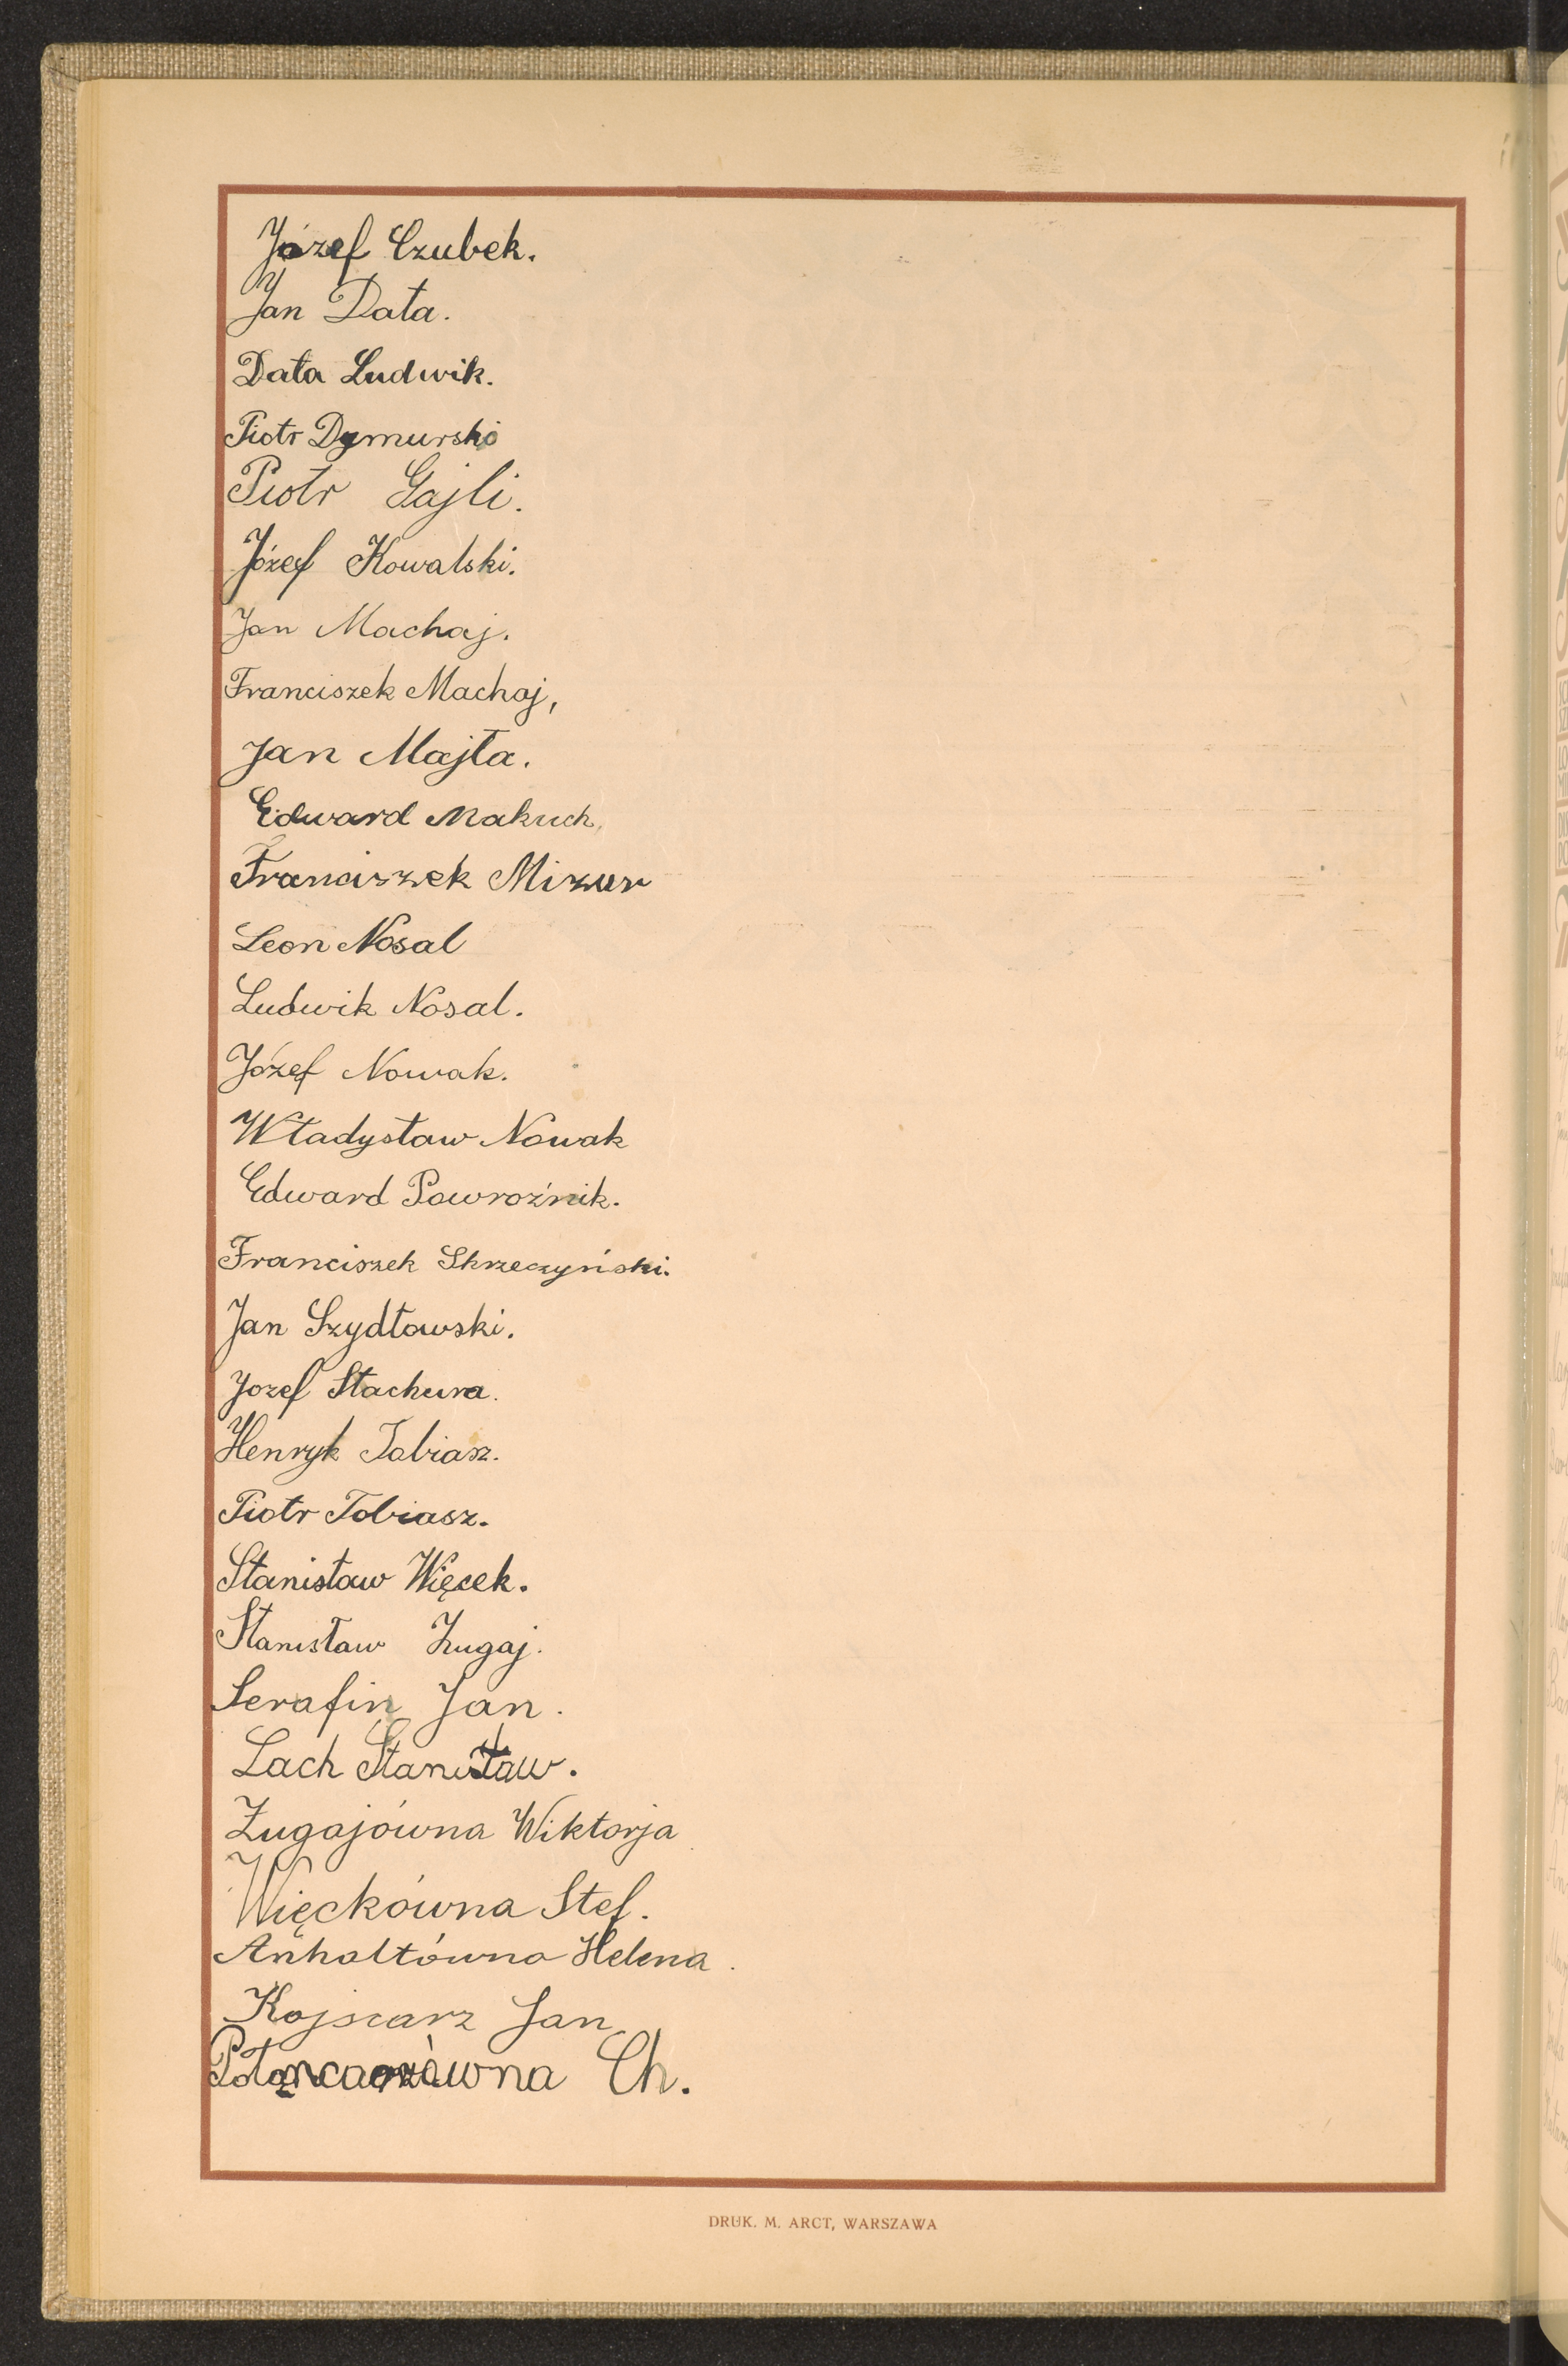 Józef Czubek.
Jan Data.
Data Ludwik.
Piotr Dymurski
Piotr Gajli.
Józef Kowalski.
Jan Machaj.
Franciszek Machaj,
Jan Majta.
Edward Makuch.
Franciszek Mizur
Leon Nosal
Ludwik Nosal.
Józef Nowak.
Władysław Nowak
Edward Powroźnik.
Franciszek Skrzeczyński.
Jan Szydłowski.
Jozef Stachura.
Henryk Tobiasz.
Piotr Tobiasz.
Stanisław Więcek.
Stanisław Żugaj.
Serafin Jan.
Lach Stanisław.
Żugajówna Wiktorja
Więckówna Stef.
Anhaltówna Helena.
Kojscarz Jan
Ch.
DRUK. M. ARCT, WARSZAWA